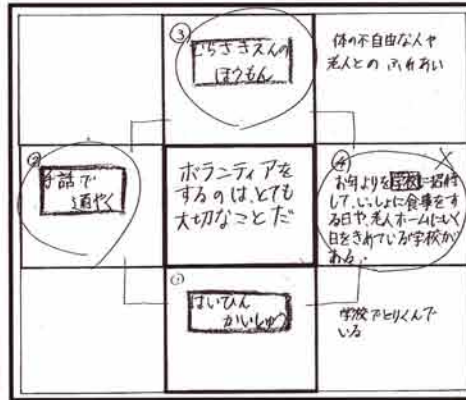 ③
むらさきえんの
ほうもん
体の不自由な人や
老人との ふれあい
②
手話で
通やく
ボランティアを
するのは、とても
大切なことだ
④
お年よりを学校に招待
して、いっしょに食事をす
る日や、老人ホームにいく
日をきめている学校が
ある。
①
はいひん
かいしゅう
学校でとりくんで
いる